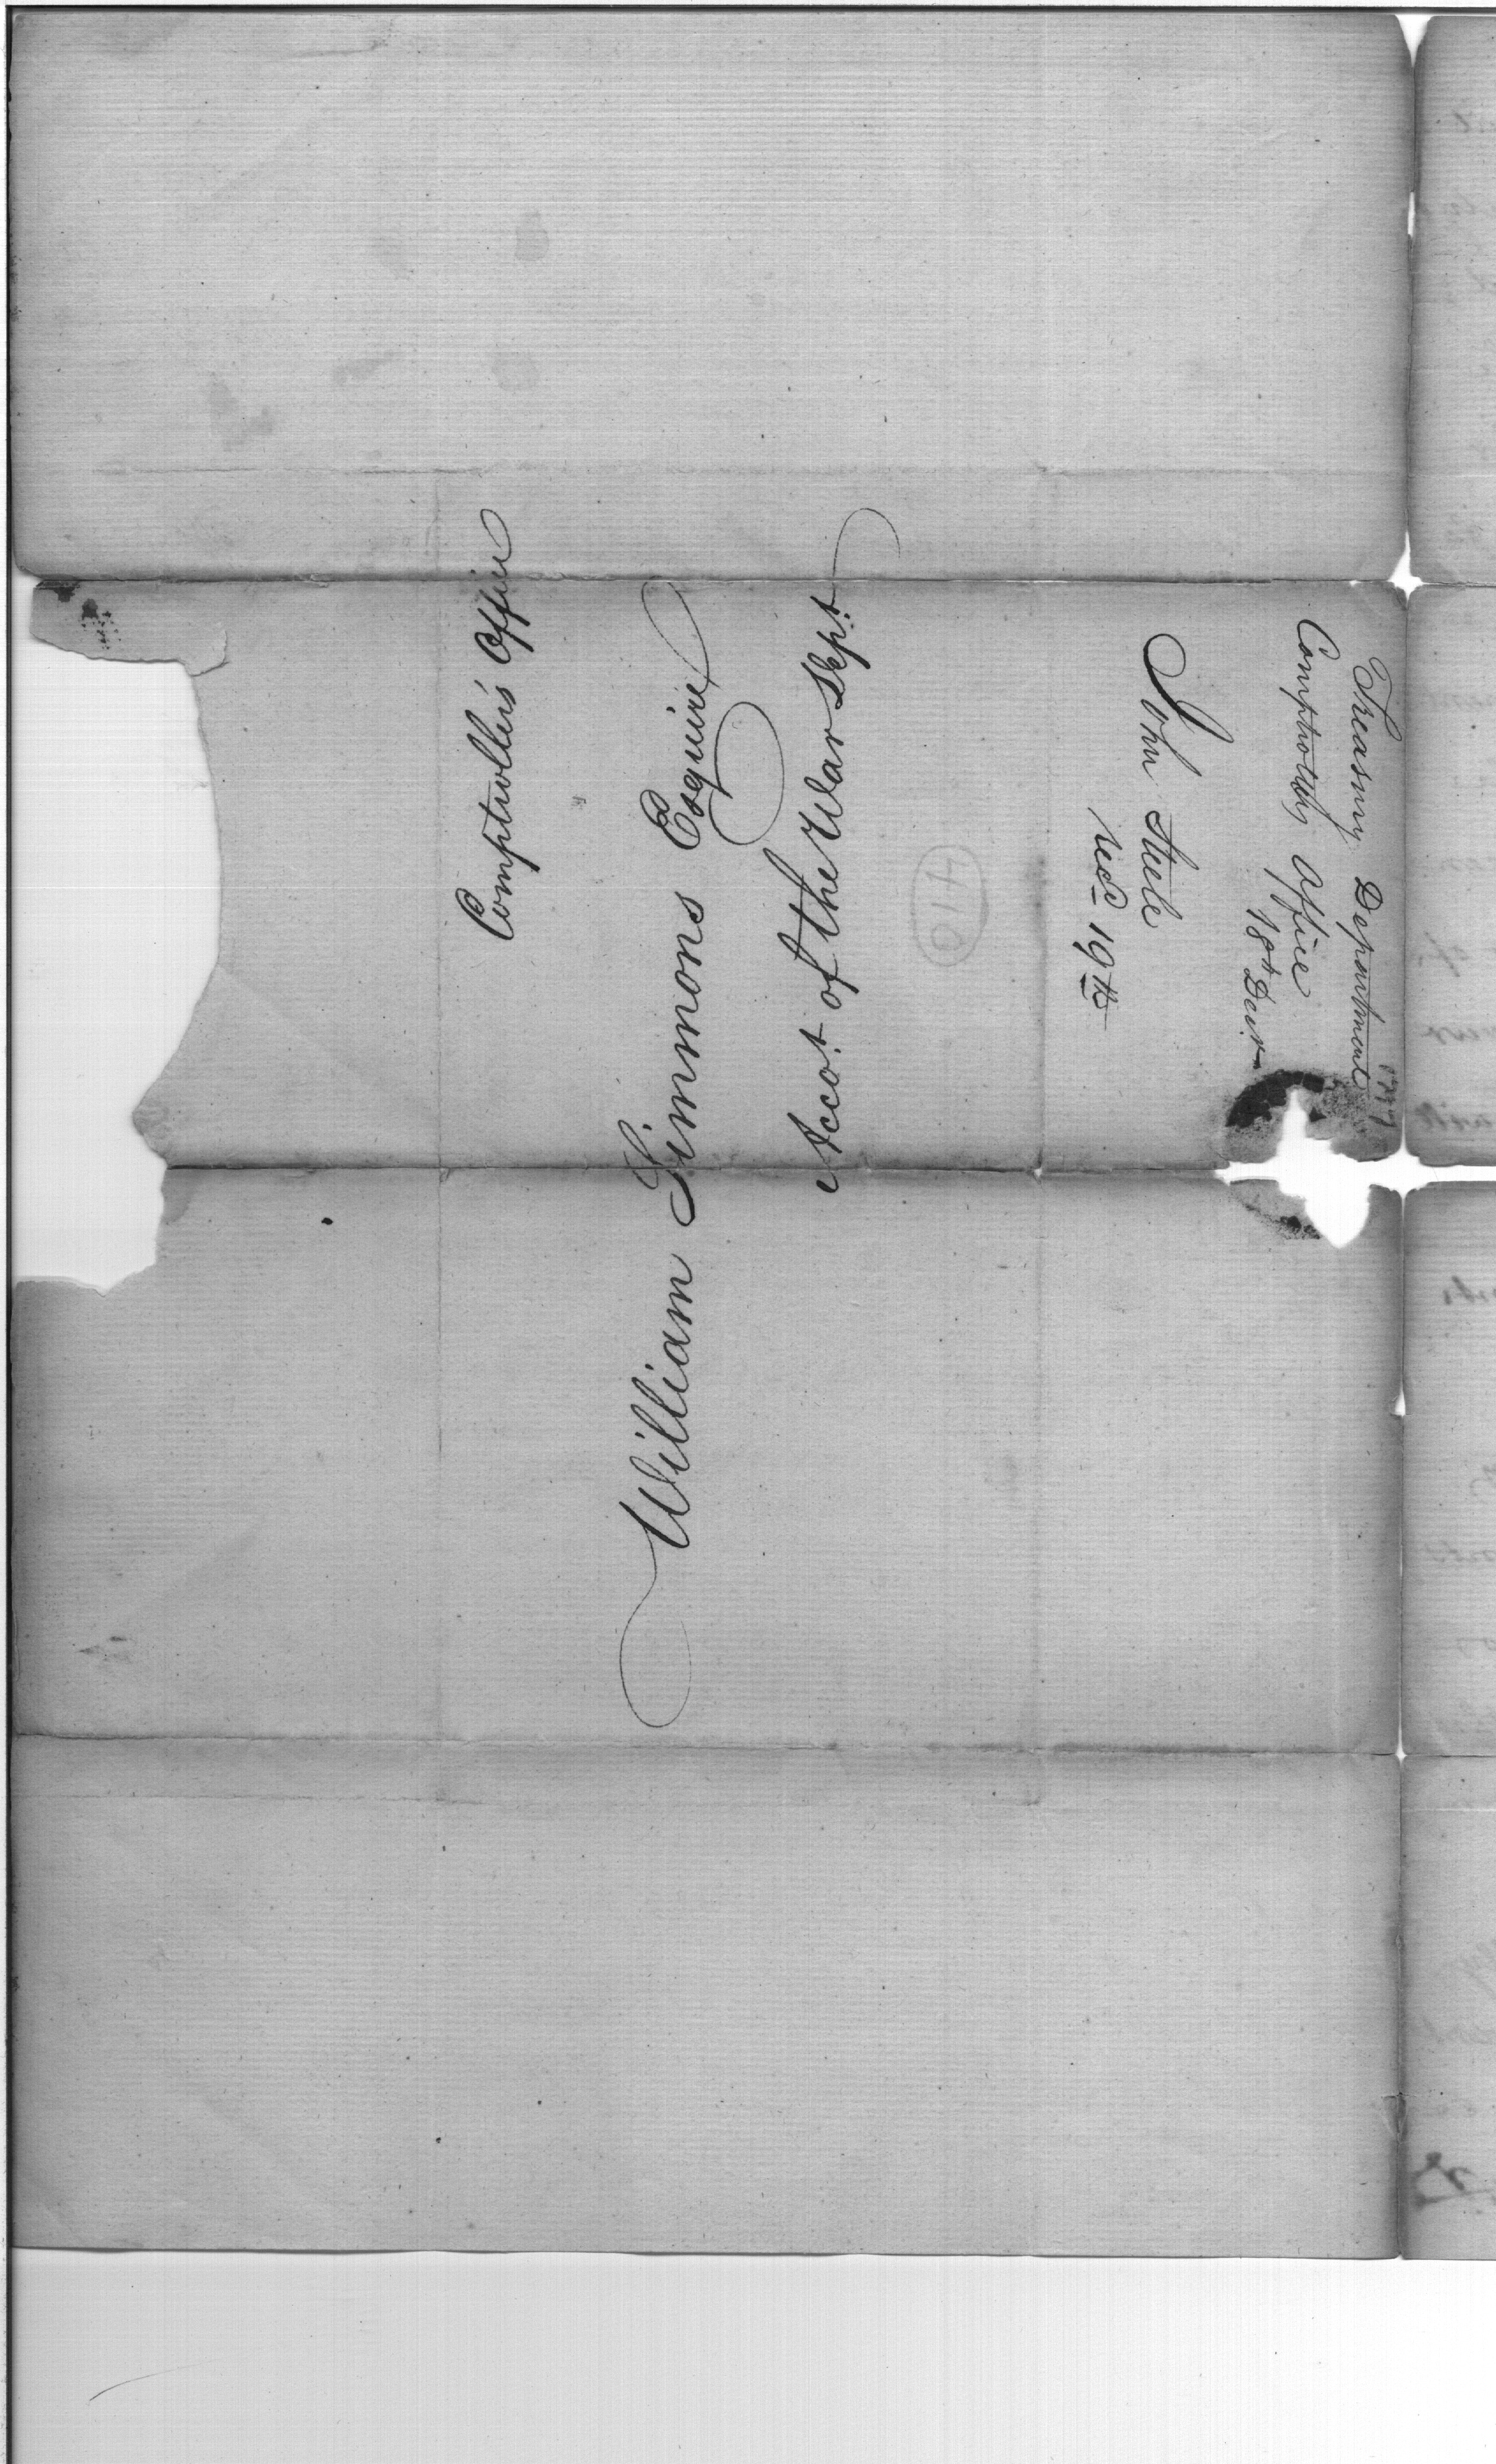 Comptroller's Office
William Simmons Esquire
Accot. of the War Dept
Treasury Department
Comptrollers Office
18th Decr
John Steele
Recd 19th
A10